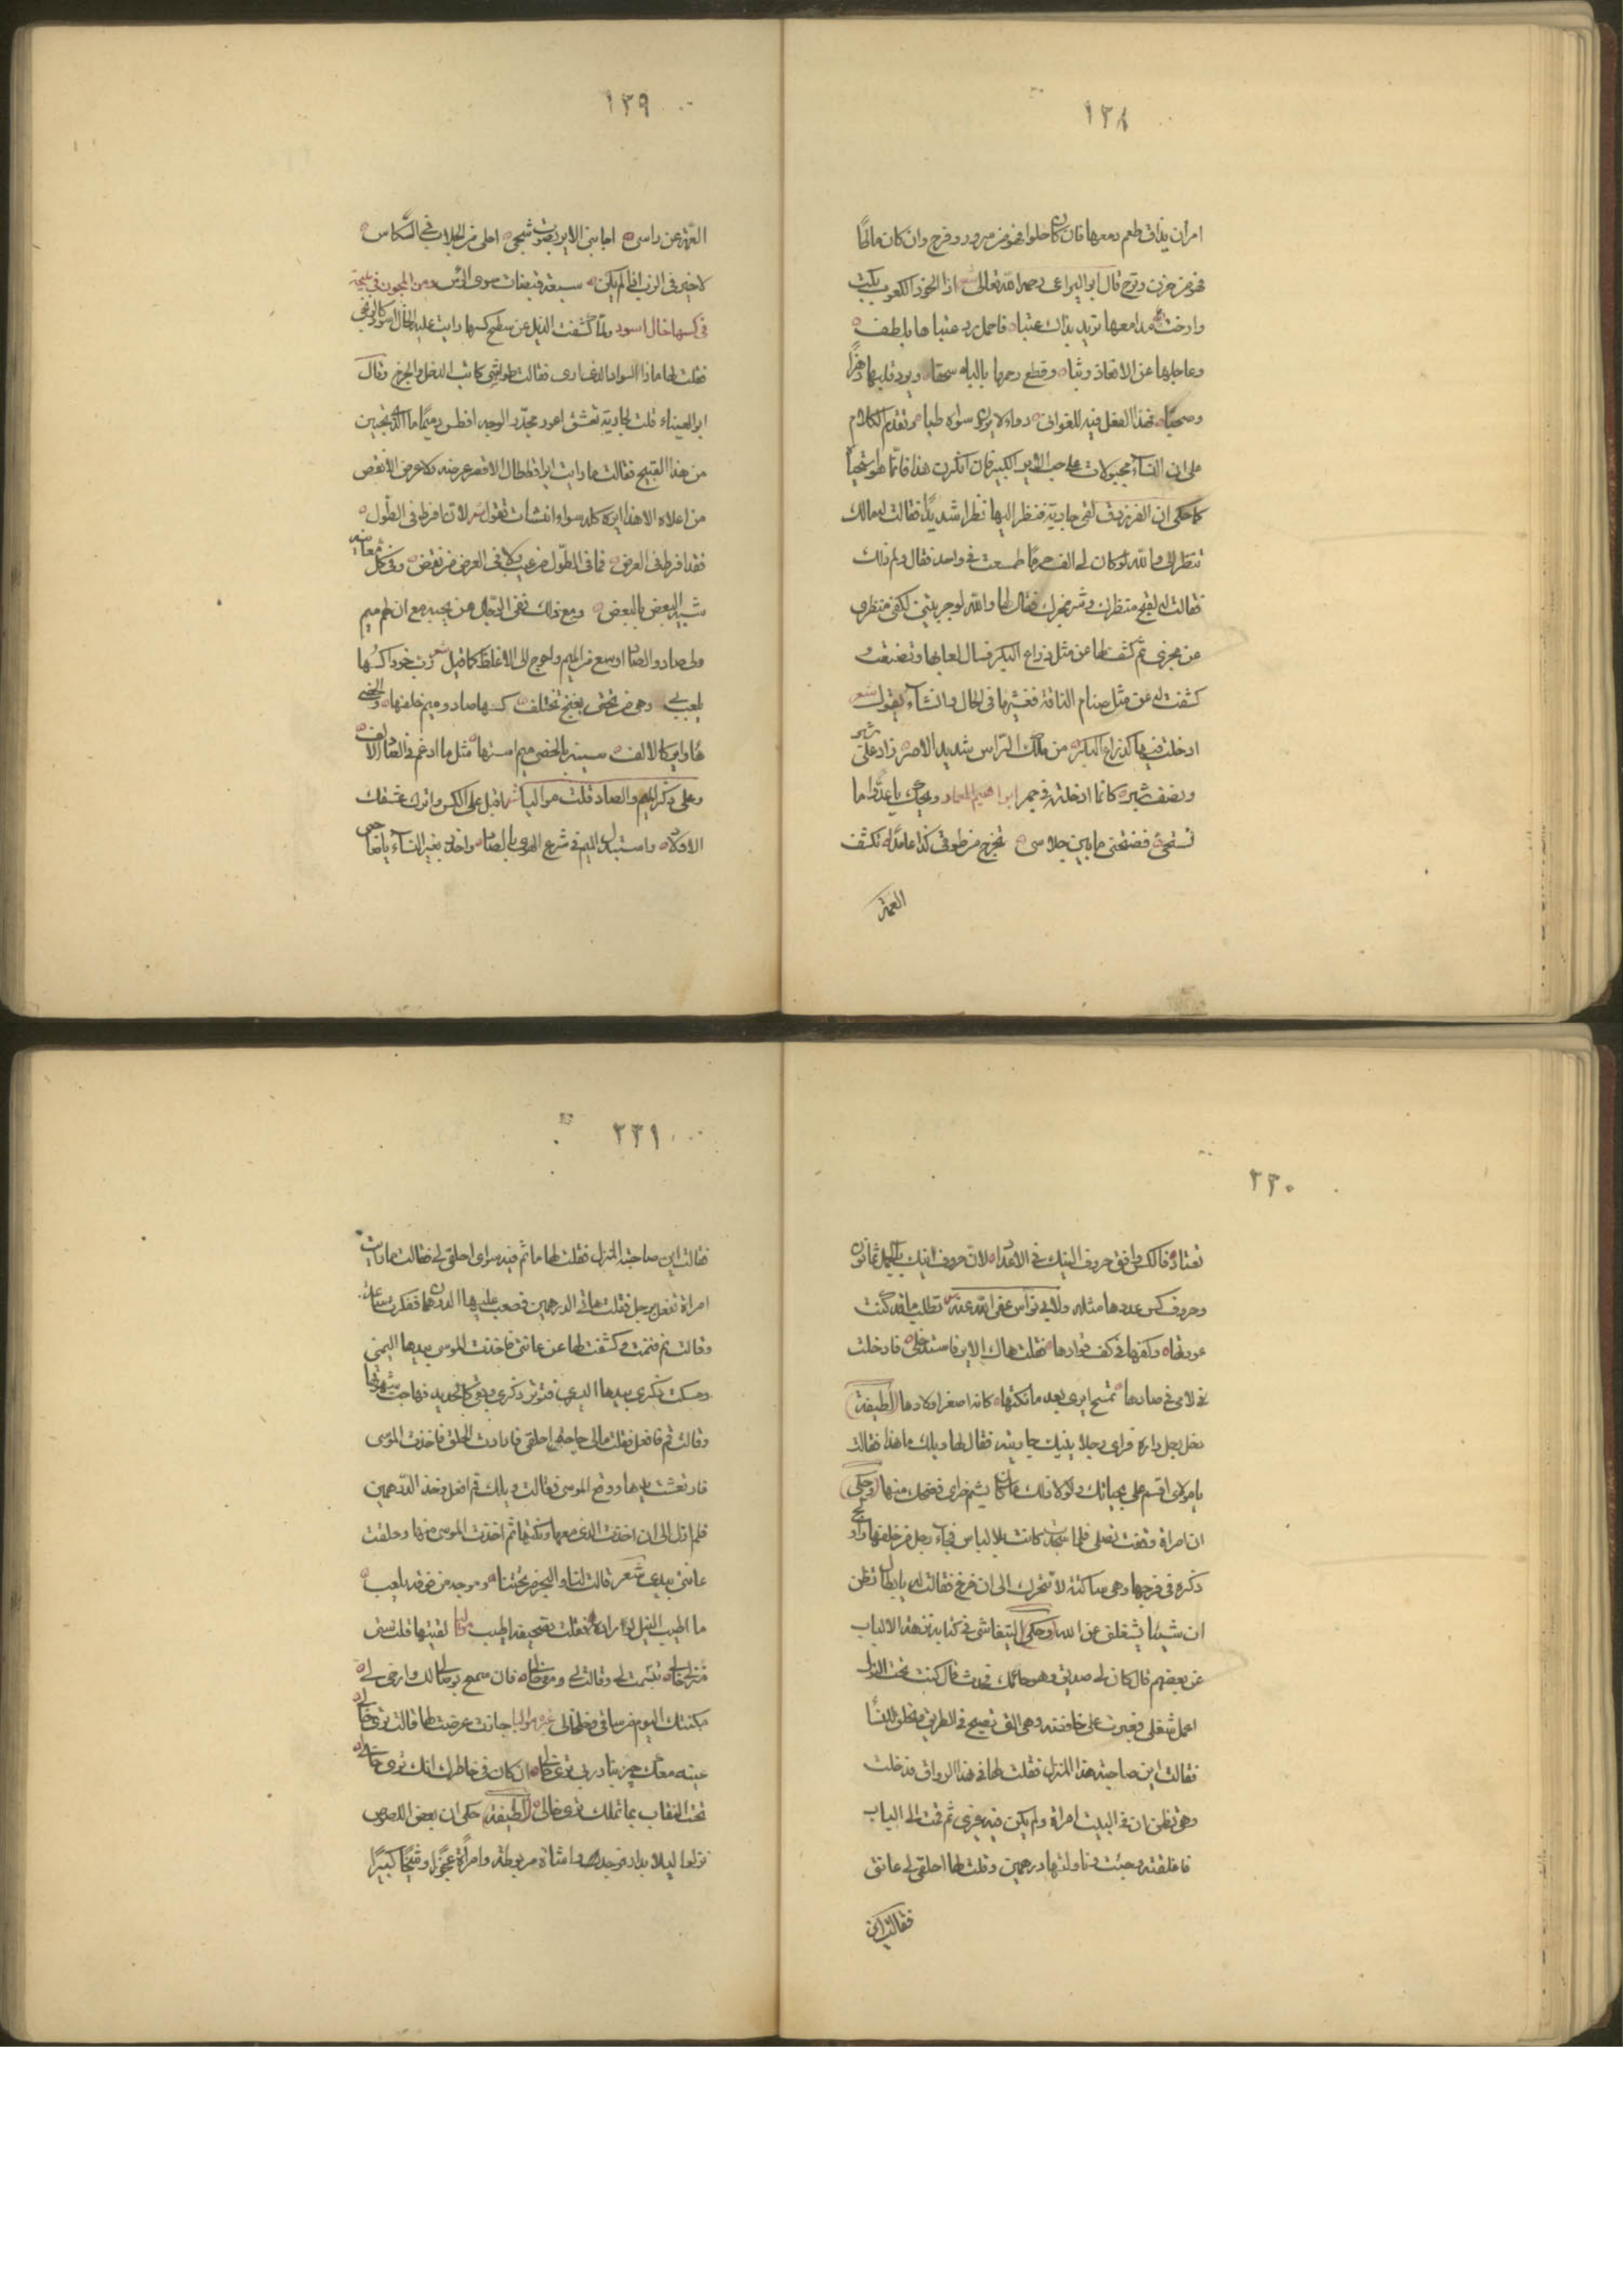 ١٣٨
امرأن يذاق طعم دمعها فان كان حلوا فهو من سرور وفرح وان كان مالحًا
فهو من حزن وترح قال ابو اليراعى رحمه الله تعالى شعر اذا الخود الكعوب بكت
وارخت مدامعها تريد بذاك عتبا فاحمل رد عتباها بلطف
وعاجلها عن الا وثبا وقطع رحمها بالباه سحقا وبرد قلبها رهزًا
وصحبا فهذا الفعل فيه للغوانى دواء لا يرى سواه طبا وتقدم الكلام
على ان النسآء مجبولات على حب الاير الكبير فان انكرت هذا فانها
كما حكى ان الفرزدق لقى جارية فنظر اليها نظرا شديدًا فقالت له مالك
تنظر الى والله لو كان لى الف حر ما طمعت فى واحد فقال ولم ذلك
فقالت له لقبح منظرك وشر مخبرك فقال لها والله لو جربتينى لكفى منظرى
عن مخبرى ثم كشف لها عن مثل ذراع البكر فسال لعابها وتضبعت و
كشفت له عن مثل سنام الناقة فغشيها فى الحال وانشآء يقول شعر
ادخلت فيها كذراع البكر من ملك الراس شديد الاصر زاد على شبر
ونصف شبر كانما ادخلته فى جمر ابراهيم المعمار ويلك يا عذّر اما
تستحى فضحتنى ما بين جلاسى تخرج من طوقى كذا عامدا تكشف
العمة
١٣٩
العمة عن راسى اجابنى الاير بصوت شجى احلى من الجلاب فى الكاس
لا خير فى الزب اذا لم يكن سبعة قبضات سوى الراس ومن المجون فى مليحة
فى كسها خال اسود ولما كشفت الذيل عن سطح كسها رايت عليه الخال اسود كالزنجى
فقلت لها ماذا السواد الذى ارى فقالت طواشى كاتب الدخل والخرج وقال
ابو العيناء قلت لجارية تعشق اعور مجدّر الوجه افطس دميمًا ما الذى تحبين
من هذا القبيح فقالت ما رايت ايرا قط طال الا قصر عرضه ولا عرض الا نقص
من اعلاه الا هذا ايره كله سوا وانشات تقول شعر لان افرط فى الطول
فقد افرط فى العرض فما فى الطول من عيب ولا فى العرض من نقض وفى كل معانيه
شبيه البعض بالبعض ومع ذلك ففى الرجال من يحبه مع ان لهم ميم
ولى صاد والصاد اوسع من الميم واحوج الى الاغلظ كما قيل شعر زب خود اكسها
يلعب بى وهى من تحتى بغنج تختلف كسها صاد وميم خلفها والخصى
ها وايرى كالالف سينه بالخصى ميم استها مثل ما ادغم فى الصاد الالف
وعلى ذكر الميم والصاد قلت مواليا شعر اقبل على الكس واترك عشقك
الاولاد واستبدل الميم فى شرع الهوى بالصاد واخذك بغير النسآء يا صاحبى
٢٣٠
تعتاد فالكس وافق حروف النيك فى الاعداد لان حروف النيك بالجمل ثمانون
وحروف كس عددها مثله ولابى نواس عفى الله عنه تطلب ما قد كنت
عودتها وكفها فى كف قوادها فقلت هاك الاير فاستدخلى فادخلت
فى لامى فى صادها تمسح ايرى بعد ما نكتها كانه اصغر اولادها لطيفة
دخل رجل داره فراى رجلا ينيك جاريته فقال لها ويلك ما هذا فقالت
يا مولاى اقسم على بحياتك ولولا ذلك ما كان يشم خراى فضحك منها وحكى
ان امراة وقفت تصلى فلما سجدت كانت بلا لباس فجاء رجل من خلفها واولج
ذكره فى فرجها وهى ساكتة لا تتحرك الى ان فرغ فقالت له يا بطال تظن
ان شيئا يشغلنى عن الله وحكى التيفاشى فى كتابه نزهة الالباب
عن بعضهم قال كان لى صديق وهو حائك فحدث قال كنت تحت النزل
اعمل شغلى فعبرت على خافضه وهى التى تصيح فى الطريق
فقالت اين صاحبة هذا المنزل فقلت لها فى هذا الرواق فدخلت
وهى تظن ان فى البيت امراة ولم يكن فيه غيرى ثم قمت الى الباب
فاغلقته وجئت وناولتها درهمين وقلت لها احلقى لى عانتى
فقالت اين
٢٣١
فقالت اين صاحبة المنزل فقلت لها ما ثم فيه سواى احلقى لى فقالت ما رايت
امراة تفعل برجل فقلت هاتى الدرهمين فصعب عليها الدرهمان ففكرت ساعة
وقالت نم فنمت وكشفت لها عن عانتى فاخذت الموسى بيدها اليمنى
ومسكت ذكرى بيدها اليسرى فتوتر ذكرى وبقى كالحديد فهاجت شهوتها
وقالت قم فافعل فقلت مالى حاجة احلقى فارادت الحلق فاخذت الموسى
فارتعشت يدها ووقع الموسى فقالت ويلك قم افعل وخذ الدرهمين
فلم ازل الى ان اخذت الذى معها ونكتها ثم اخذت الموسى منها وحلقت
عانتى بيدى شعر قالت لنا والبحر من تحتنا وموجه من فوقه يلعب
ما اطيب النيل لو امراده فقلت تصحيفه اطيب مواليا لقيتها قلت ستى
منزلى خالى تبسمت لى وقالت لى ومو خالى فان سمح بوصالك وارخى لى
مكنتك اليوم من ساقى وخلخالى غيره مواليا جازت عرضت لها قالت ترى خالى
عينه معك حين بنادرنى ترى خالى ان كان فى خاطرك انك ترى خالى
تحت النقاب بما تملك ترى خالى لطيفة حكى ان بعض اللصوص
نزلوا ليلا بدار فوجدوا شاة مربوطة وامراة عجوزا وشيخا كبيرًا